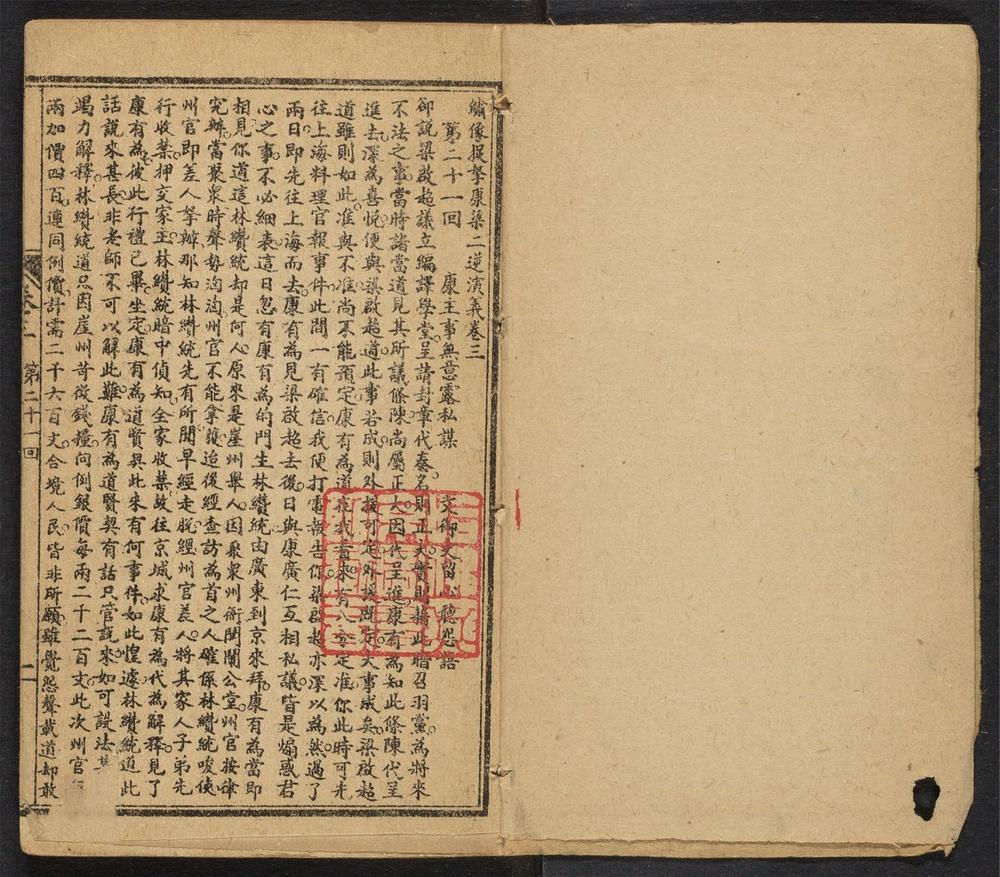 繡像捉拏康梁二逆演義卷三
第二十一回 康主事無意露私謀 文御史留心聽怨語
卻說梁啟超議立編譯學堂呈請封章代奏名則正大實則藉此暗召羽黨為將來
不法之事當時諸當道見其所議條陳尚屬正大因代呈進康有為知此條陳代呈
進去深為喜悅便與梁啟超道此事若成則外援可定外援既定大事成矣梁啟超
道雖則如此准與不准尚不能預定康有為道在我看來有八分定准你此時可先
往上海料理官報事件此間一有確信我便打電報告你梁啟超亦深以為然過了
兩日即先往上海而去康有為見梁啟超去後日與康廣仁互相私議皆是煽惑君
心之事不必細表這日忽有康有為的門生林纘統由廣東到京來拜康有為當即
相見你道這林纘統却是何人原來是崖州舉人因聚眾州衙閧鬧公堂州官按律
究辦當聚眾時聲勢洶洶州官不能拿獲迨後經查訪為首之人確係林纘統唆使
州官即差人拏辦那知林纘統先有所聞早經走脫經州官差人將其家人子弟先
行收禁押交家主林纘統暗中偵知全家收禁故往京城求康有為代為解釋見了
康有為彼此行禮已畢坐定康有為道賢契此來有何事件如此惶遽林纘統道此
話說來甚長非老師不可以解此難康有為道賢契有話只管說來如可設法
竭力解釋林纘統道只因崖州苛徵錢糧向例銀價每兩二千二百文此次州官
兩加價四百連同例價計需二千六百文合境人民皆非所願雖覺怨聲載道却敢
卷三 第二十一回 一